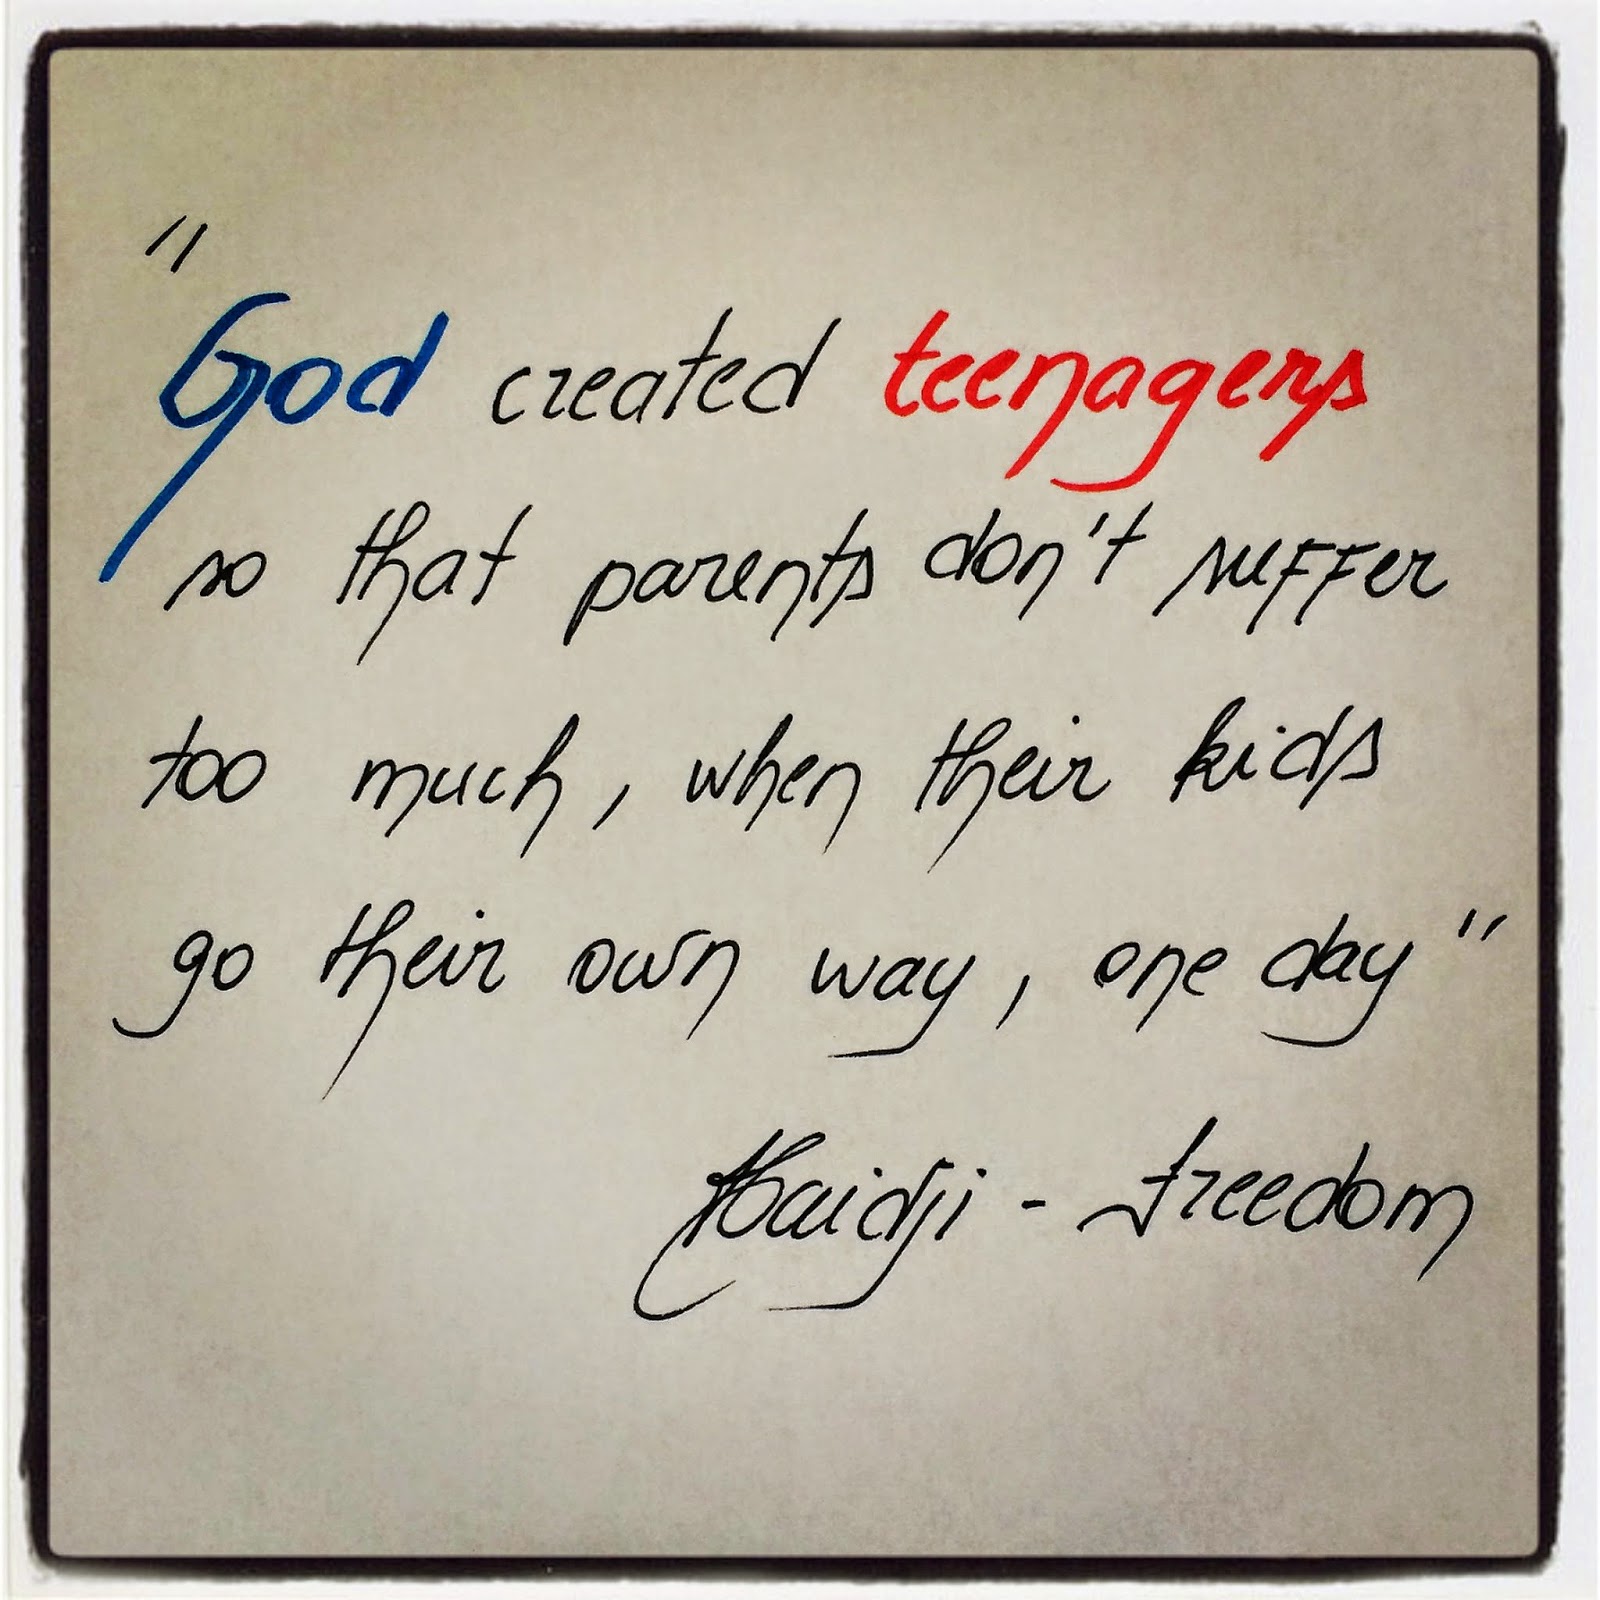 "
God created teenagers
so that parents don't suffer
too much, when their kids
go their own way, one day"
Haidji - Freedom